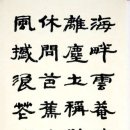 海畔雲菴
離塵土稱
休問芭蕉
風撼浪花